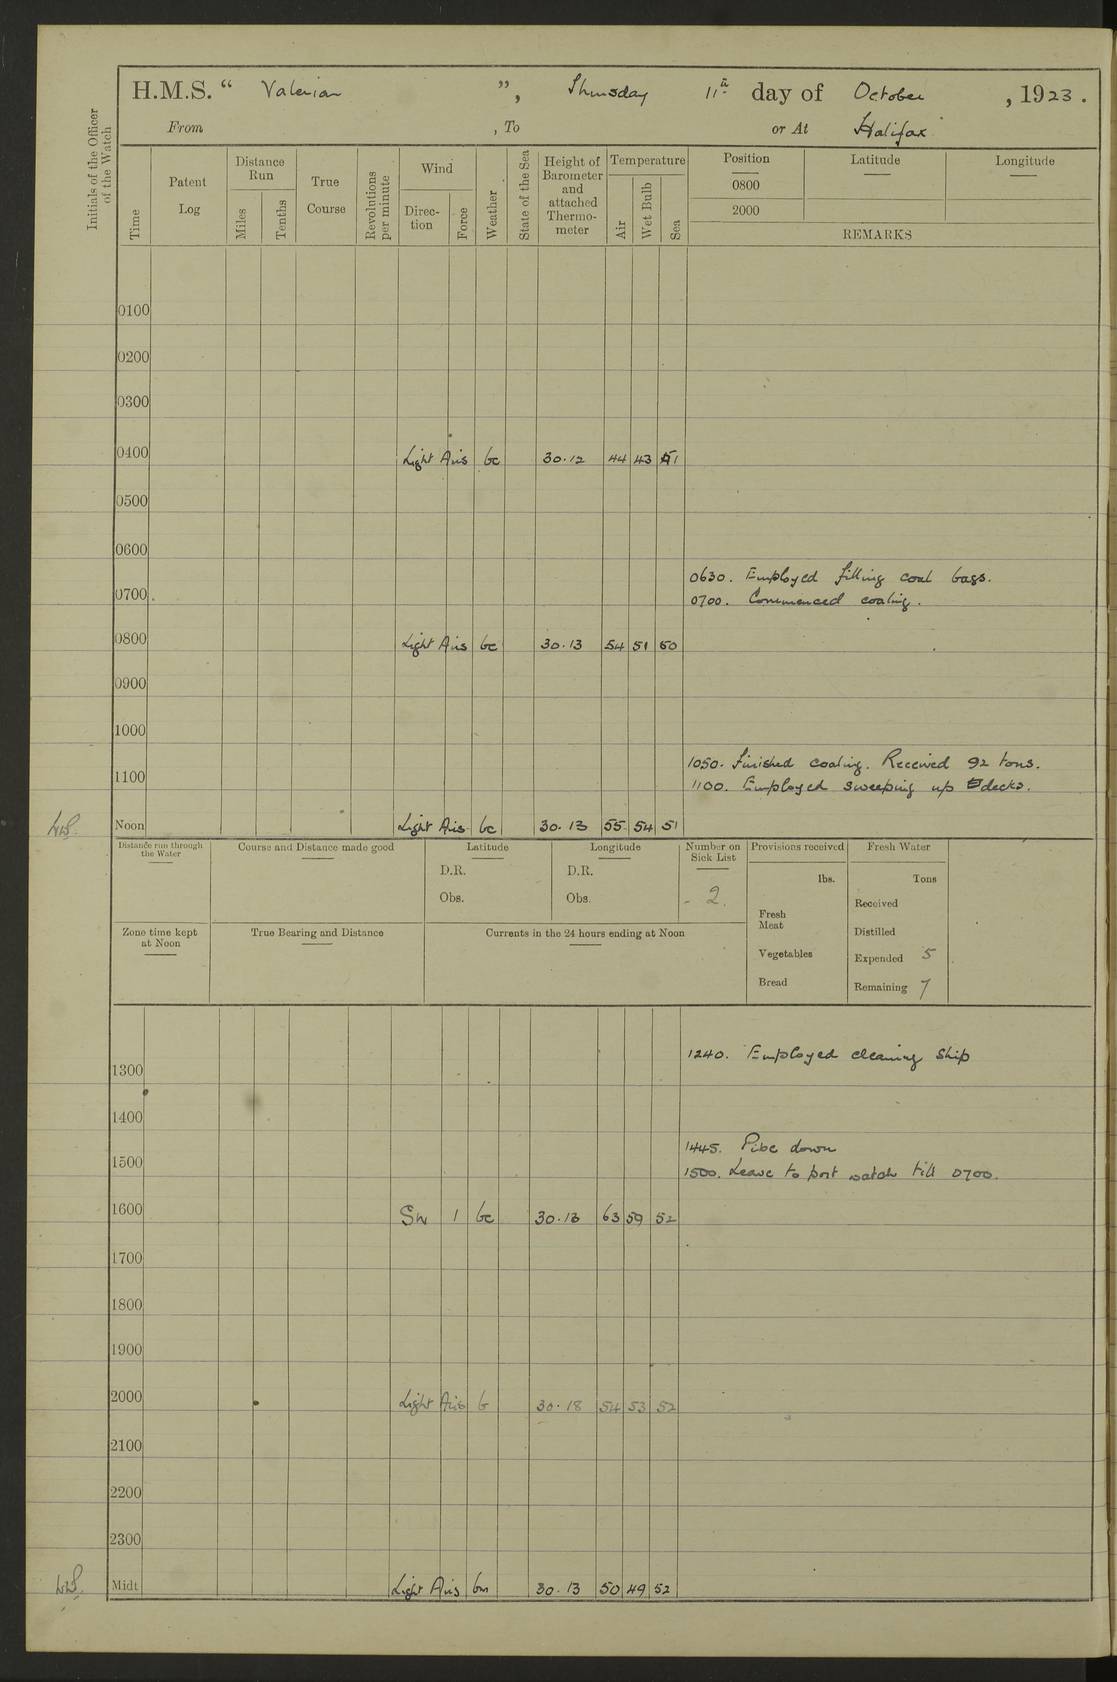 H.M.S. “ Valerian ”, Thursday 11th day of October , 1923 .
From , To or At Halifax
Initials of the Officer of the Watch
Time
Patent Log
Distance Run
Miles
Tenths
True Course
Revolutions per minute
Wind
Direc-tion
Force
Weather
State of the Sea
Height of Barometer and attached Thermo-meter
Temperature
Air
Wet Bulb
Sea
Position Latitude Longitude
0800
2000
REMARKS
0100
0200
0300
0400 Light Airs bc 30.12 44 43 51
0500
0600
0630. Employed filling coal bags.
0700
0700. Commenced coaling.
0800 Light Airs bc 30.13 54 51 50
0900
1000
1050. Finished coaling. Received 92 tons.
1100
1100. Employed sweeping up decks.
Noon Light Airs bc 30.13 55 54 51
Distance run through the Water
Course and Distance made good
Latitude
D.R.
Obs.
Longitude
D.R.
Obs.
Number on Sick List
- 2.
Provisions received
lbs.
Fresh Meat
Vegetables
Bread
Fresh Water
Tons
Received
Distilled
Expended 5
Remaining 7
Zone time kept at Noon
True Bearing and Distance
Currents in the 24 hours ending at Noon
1240. Employed cleaning ship
1300
1400
1445. Pipe down
1500
1500. Leave to port watch till 0700.
1600 SW 1 bc 30.13 63 59 52
1700
1800
1900
2000 Light Airs b 30.18 54 53 52
2100
2200
2300
Midt Light Airs bm 30.13 50 49 52